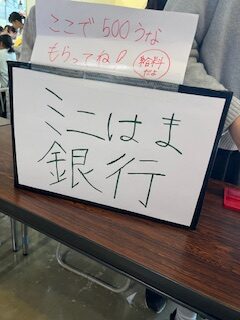 ここで500うな
もらってね!
給料
だよ
ミニはま
銀行